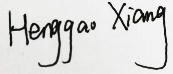 Henggao Xiang